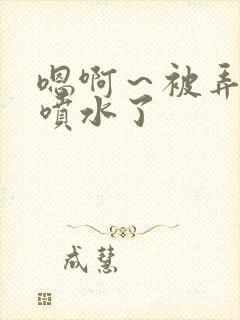 嗯啊～被弄
喷水了
成慧